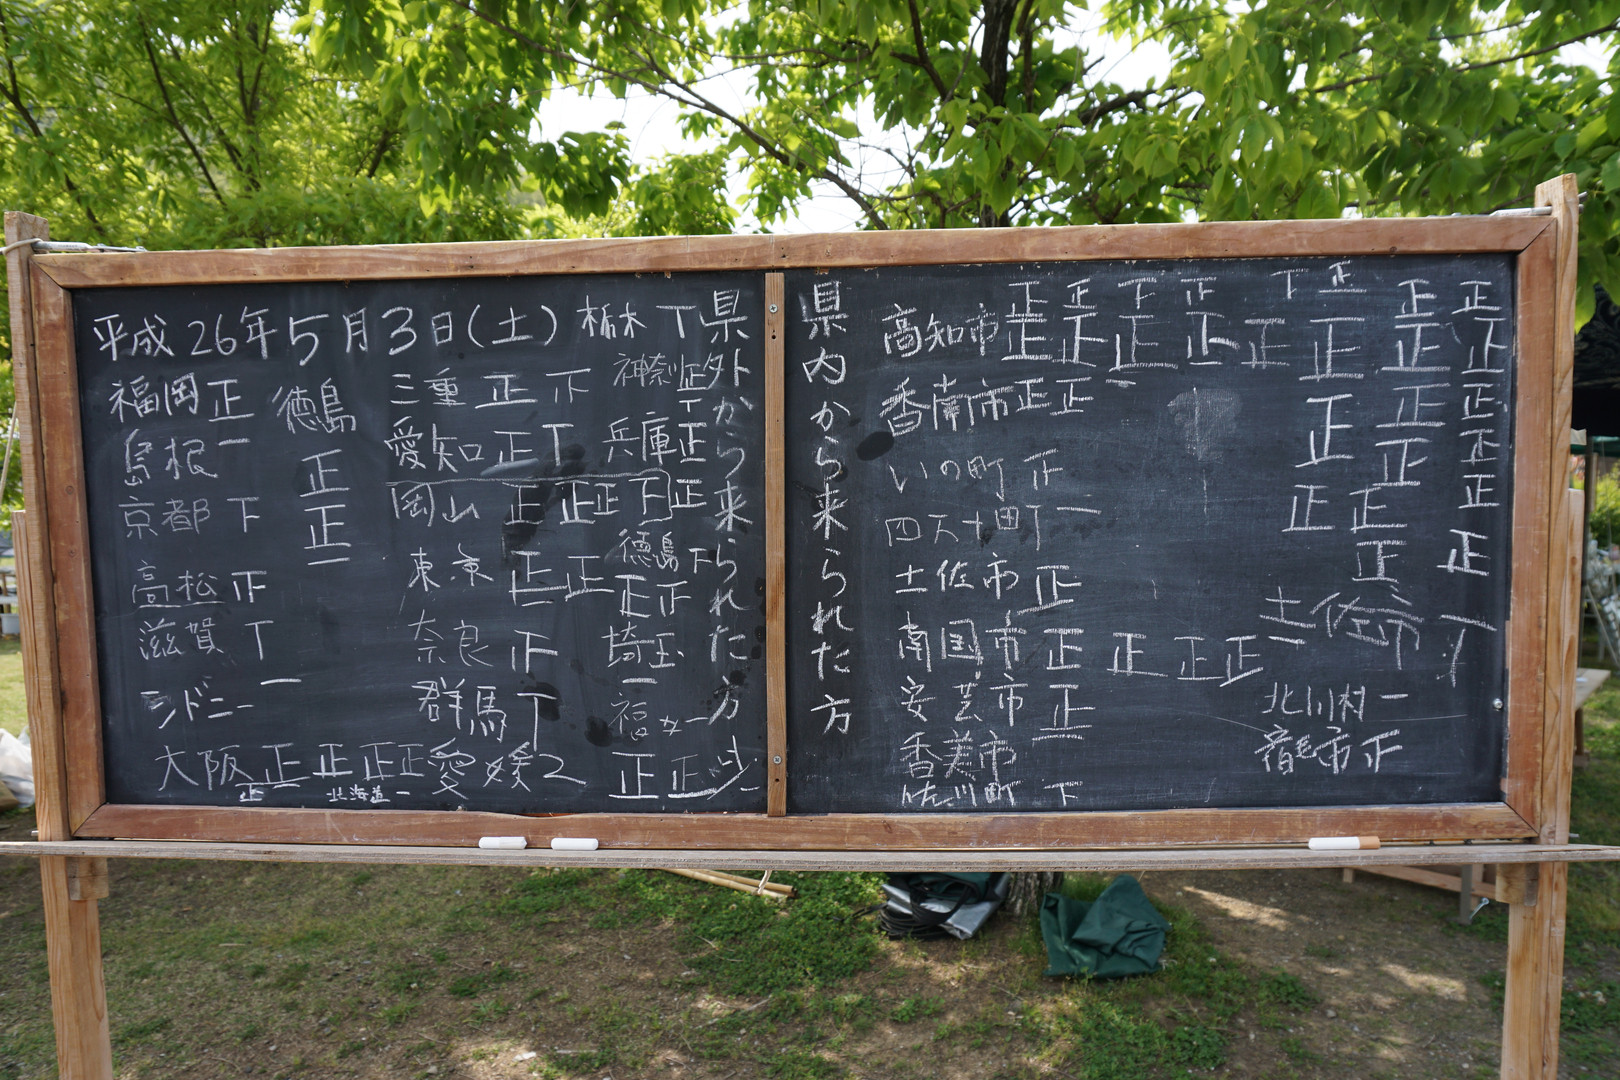 平成26年5月3日(土)
福岡 正
島根 一
京都 下
高松 正
滋賀 丅
シドニー 一
大阪 正 正 正 正 正
北海道 一
徳島 正 正 一
三重 正 下
愛知 正 丅
岡山 正 正 正 下 正
東京 正 正
奈良 正
群馬 丅
愛媛2
栃木 丅
神奈川 正 丅
兵庫 正
徳島 下
正 正
埼玉 一
正 正
県外から来られた方
県内から来られた方
高知市 正 正 正 正 下 正 正 正 正 下 正 正
香南市 正 正 一
いの町 正
四万十町 一
土佐市 正
南国市 正 正 正 正 一
安芸市 正 一
香美市
佐川町 下
正 正 正 正 正 正 正
正 正 正 正 正 正
土佐市 丅
北川村 一
正